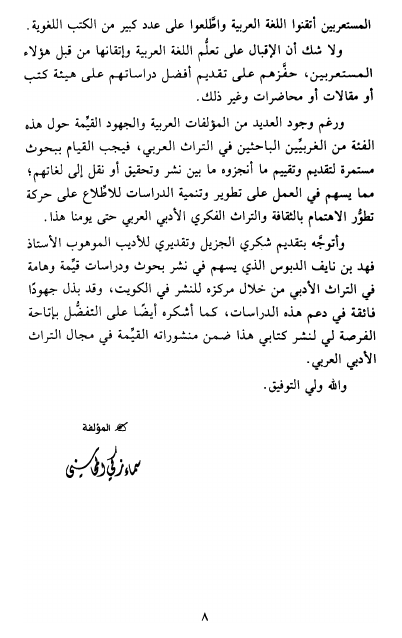 المستعربين أتقنوا اللغة العربية واطَّلعوا على عدد كبير من الكتب اللغوية.
ولا شك أن الإقبال على تعلُّم اللغة العربية وإتقانها من قبل هؤلاء
المستعربين، حفَّزهم على تقديم أفضل دراساتهم على هيئة كتب
أو مقالات أو محاضرات وغير ذلك.
ورغم وجود العديد من المؤلفات العربية والجهود القيِّمة حول هذه
الفئة من الغربيِّين الباحثين في التراث العربي، فيجب القيام ببحوث
مستمرة لتقديم وتقييم ما أنجزوه ما بين نشر وتحقيق أو نقل إلى لغاتهم؛
مما يسهم في العمل على تطوير وتنمية الدراسات للاطِّلاع على حركة
تطوُّر الاهتمام بالثقافة والتراث الفكري الأدبي العربي حتى يومنا هذا.
وأتوجَّه بتقديم شكري الجزيل وتقديري للأديب الموهوب الأستاذ
فهد بن نايف الدبوس الذي يسهم في نشر بحوث ودراسات قيِّمة وهامة
في التراث الأدبي من خلال مركزه للنشر في الكويت، وقد بذل جهودًا
فائقة في دعم هذه الدراسات، كما أشكره أيضًا على التفضُّل بإتاحة
الفرصة لي لنشر كتابي هذا ضمن منشوراته القيِّمة في مجال التراث
الأدبي العربي.
والله ولي التوفيق.
المؤلفة
سماء زكي المحاسني
٨